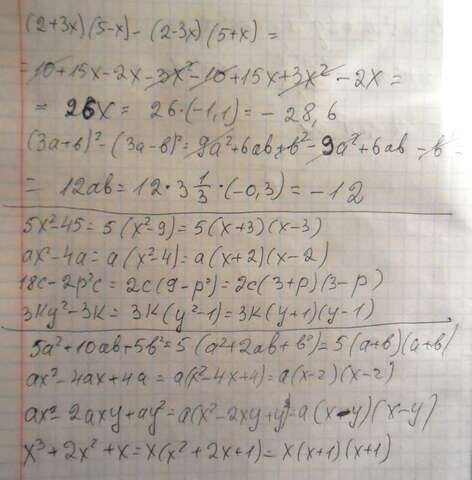 (2+3x)(5-x)-(2-3x)(5+x)=
=10+15x-2x-3x²-10+15x+3x²-2x=
= 26x = 26·(-1,1)= -28,6
(3a+b)²-(3a-b)²=9a²+6ab+b²-9a²+6ab-b
= 12ab=12·3 1/3·(-0,3)=-12
5x²-45=5(x²-9)=5(x+3)(x-3)
ax²-4a=a(x²-4)=a(x+2)(x-2)
18c-2p²c=2c(9-p²)=2c(3+p)(3-p)
3ky²-3k=3k(y²-1)=3k(y+1)(y-1)
5a²+10ab+5b²=5(a²+2ab+b²)=5(a+b)(a+b)
ax²-4ax+4a=a(x²-4x+4)=a(x-2)(x-2)
ax²-2axy+ay²=a(x²-2xy+y²)=a(x-y)(x-y)
x³+2x²+x=x(x²+2x+1)=x(x+1)(x+1)